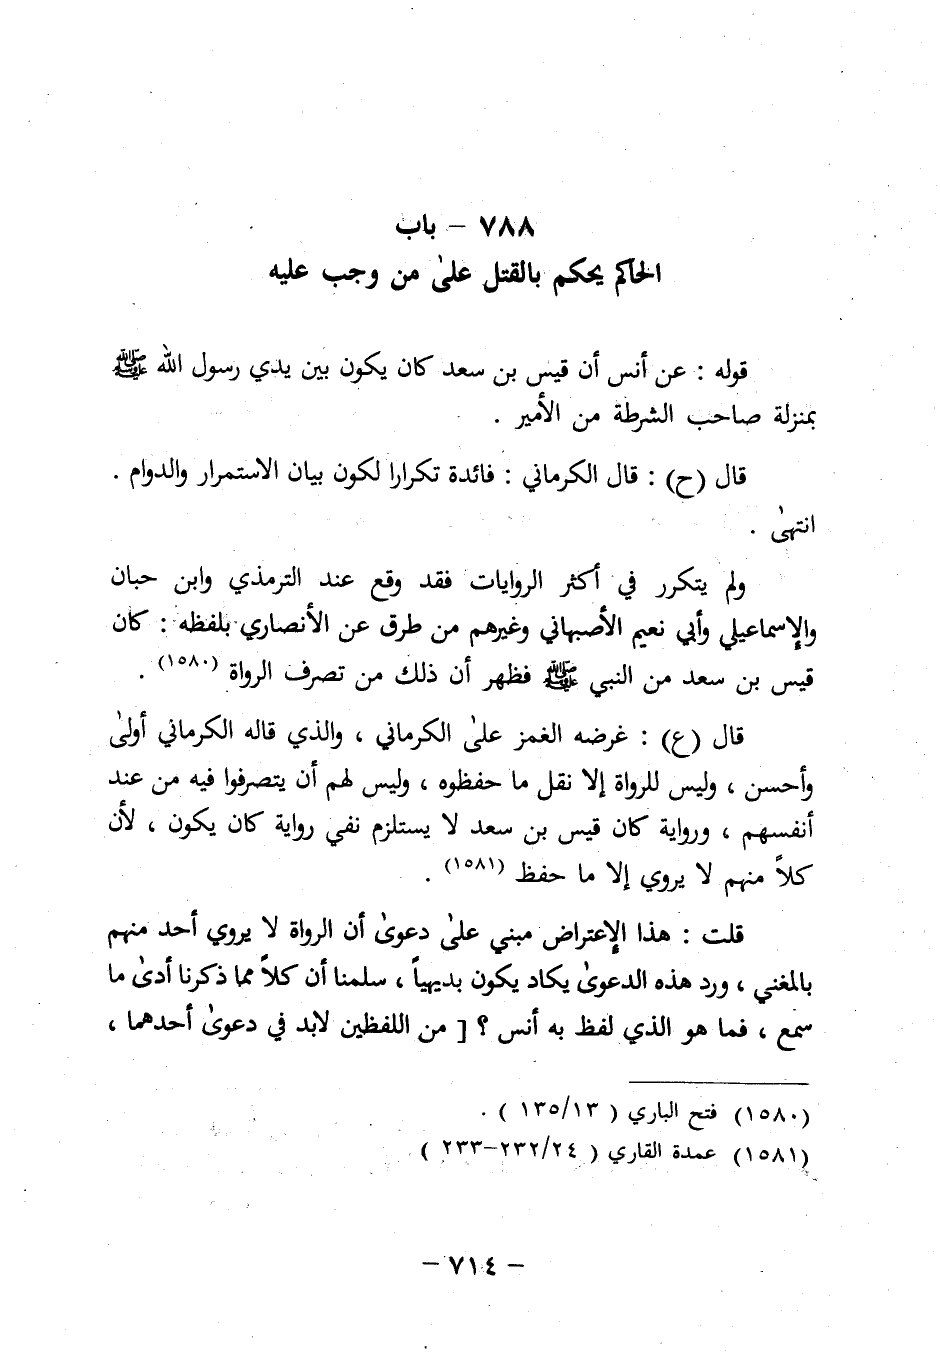 ٧٨٨ – باب
الحاكم يحكم بالقتل علىٰ من وجب عليه
قوله : عن أنس أن قيس بن سعد كان يكون بين يدي رسول الله ﷺ
بمنزلة صاحب الشرطة من الأمير .
قال (ح) : قال الكرماني : فائدة تكرارا لكون بيان الاستمرار والدوام .
انتهىٰ .
ولم يتكرر في أكثر الروايات فقد وقع عند الترمذي وابن حبان
والإسماعيلي وأبي نعيم الأصبهاني وغيرهم من طرق عن الأنصاري بلفظه : كان
قيس بن سعد من النبي ﷺ فظهر أن ذلك من تصرف الرواة (١٥٨٠) .
قال (ع) : غرضه الغمز علىٰ الكرماني ، والذي قاله الكرماني أولىٰ
وأحسن ، وليس للرواة إلا نقل ما حفظوه ، وليس لهم أن يتصرفوا فيه من عند
أنفسهم ، ورواية كان قيس بن سعد لا يستلزم نفي رواية كان يكون ، لأن
كلاً منهم لا يروي إلا ما حفظ (١٥٨١) .
قلت : هذا الإعتراض مبني علىٰ دعوىٰ أن الرواة لا يروي أحد منهم
بالمغني ، ورد هذه الدعوىٰ يكاد يكون بديهياً ، سلمنا أن كلاً مما ذكرنا أدىٰ ما
سمع ، فما هو الذي لفظ به أنس ؟ [ من اللفظين لابد في دعوىٰ أحدهما ،
(١٥٨٠) فتح الباري ( ١٣٥/١٣ ) .
(١٥٨١) عمدة القاري ( ٢٣٢/٢٤–٢٣٣ )
– ٧١٤ –